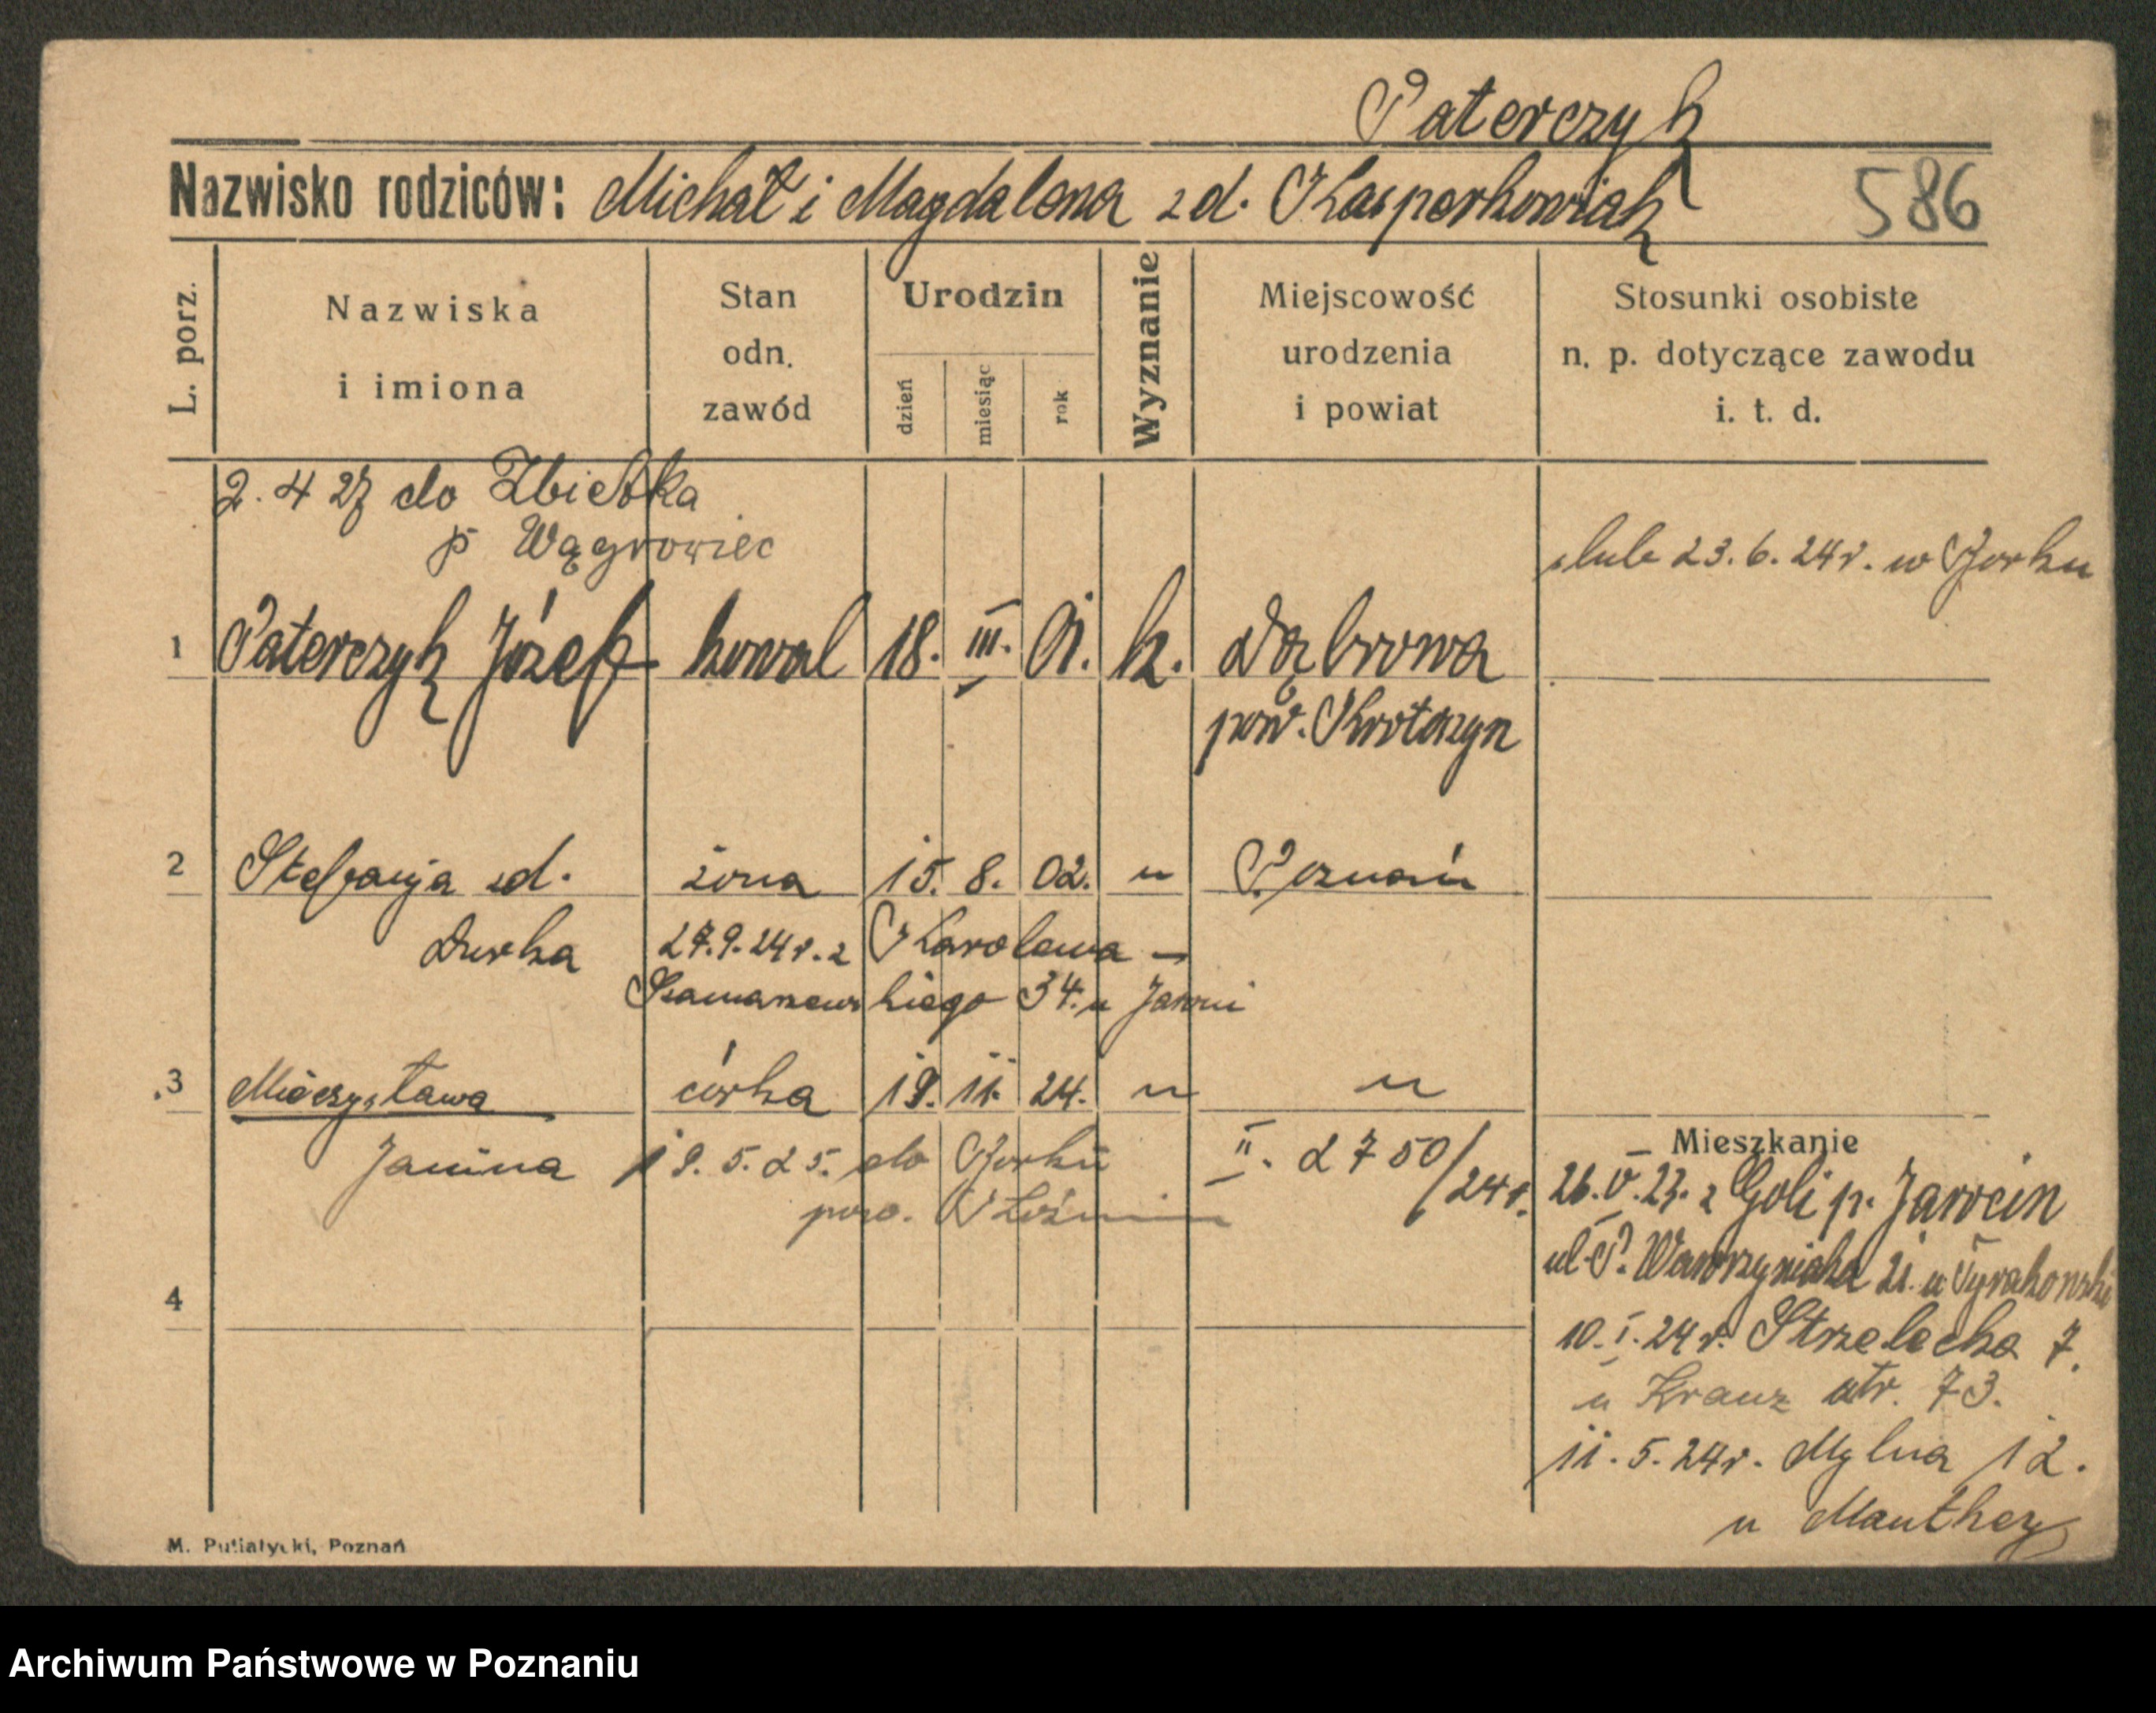 Paterczyk
Nazwisko rodziców: Michał i Magdalena zd. Kasperkowiak 586
L. porz.
Nazwiska i imiona
Stan odn. zawód
Urodzin
dzień miesiąc rok
Wyznanie
Miejscowość urodzenia i powiat
Stosunki osobiste n. p. dotyczące zawodu i. t. d.
2. 4 27 do Zbietka
p Wągrowiec
ślub 23. 6. 24 r. w Borku
1 Paterczyk Józef kowal 18. III. 01. k. Dąbrowa
pow. Krotoszyn
2 Stefanja zd. żona 15. 8. 02. " Poznań
Durka 27. 9. 24 r. z Karolewa –
Szamarzewskiego 34. u
3 Mieczysława córka 19. 11. 24. " "
Janina 19. 5. 25. do Borku II. 2750/24 r.
pow. Koźmin
Mieszkanie
26. V. 23. z Goli p. Jarocin
ul. P. Wawrzyniaka 21. u Tyrakowski
4
10. I. 24 r. Strzelecka 7.
u Kranz atr. 73.
11. 5. 24 r. Mylna 12.
u Manthey
M. Putiatycki, Poznań
Archiwum Państwowe w Poznaniu